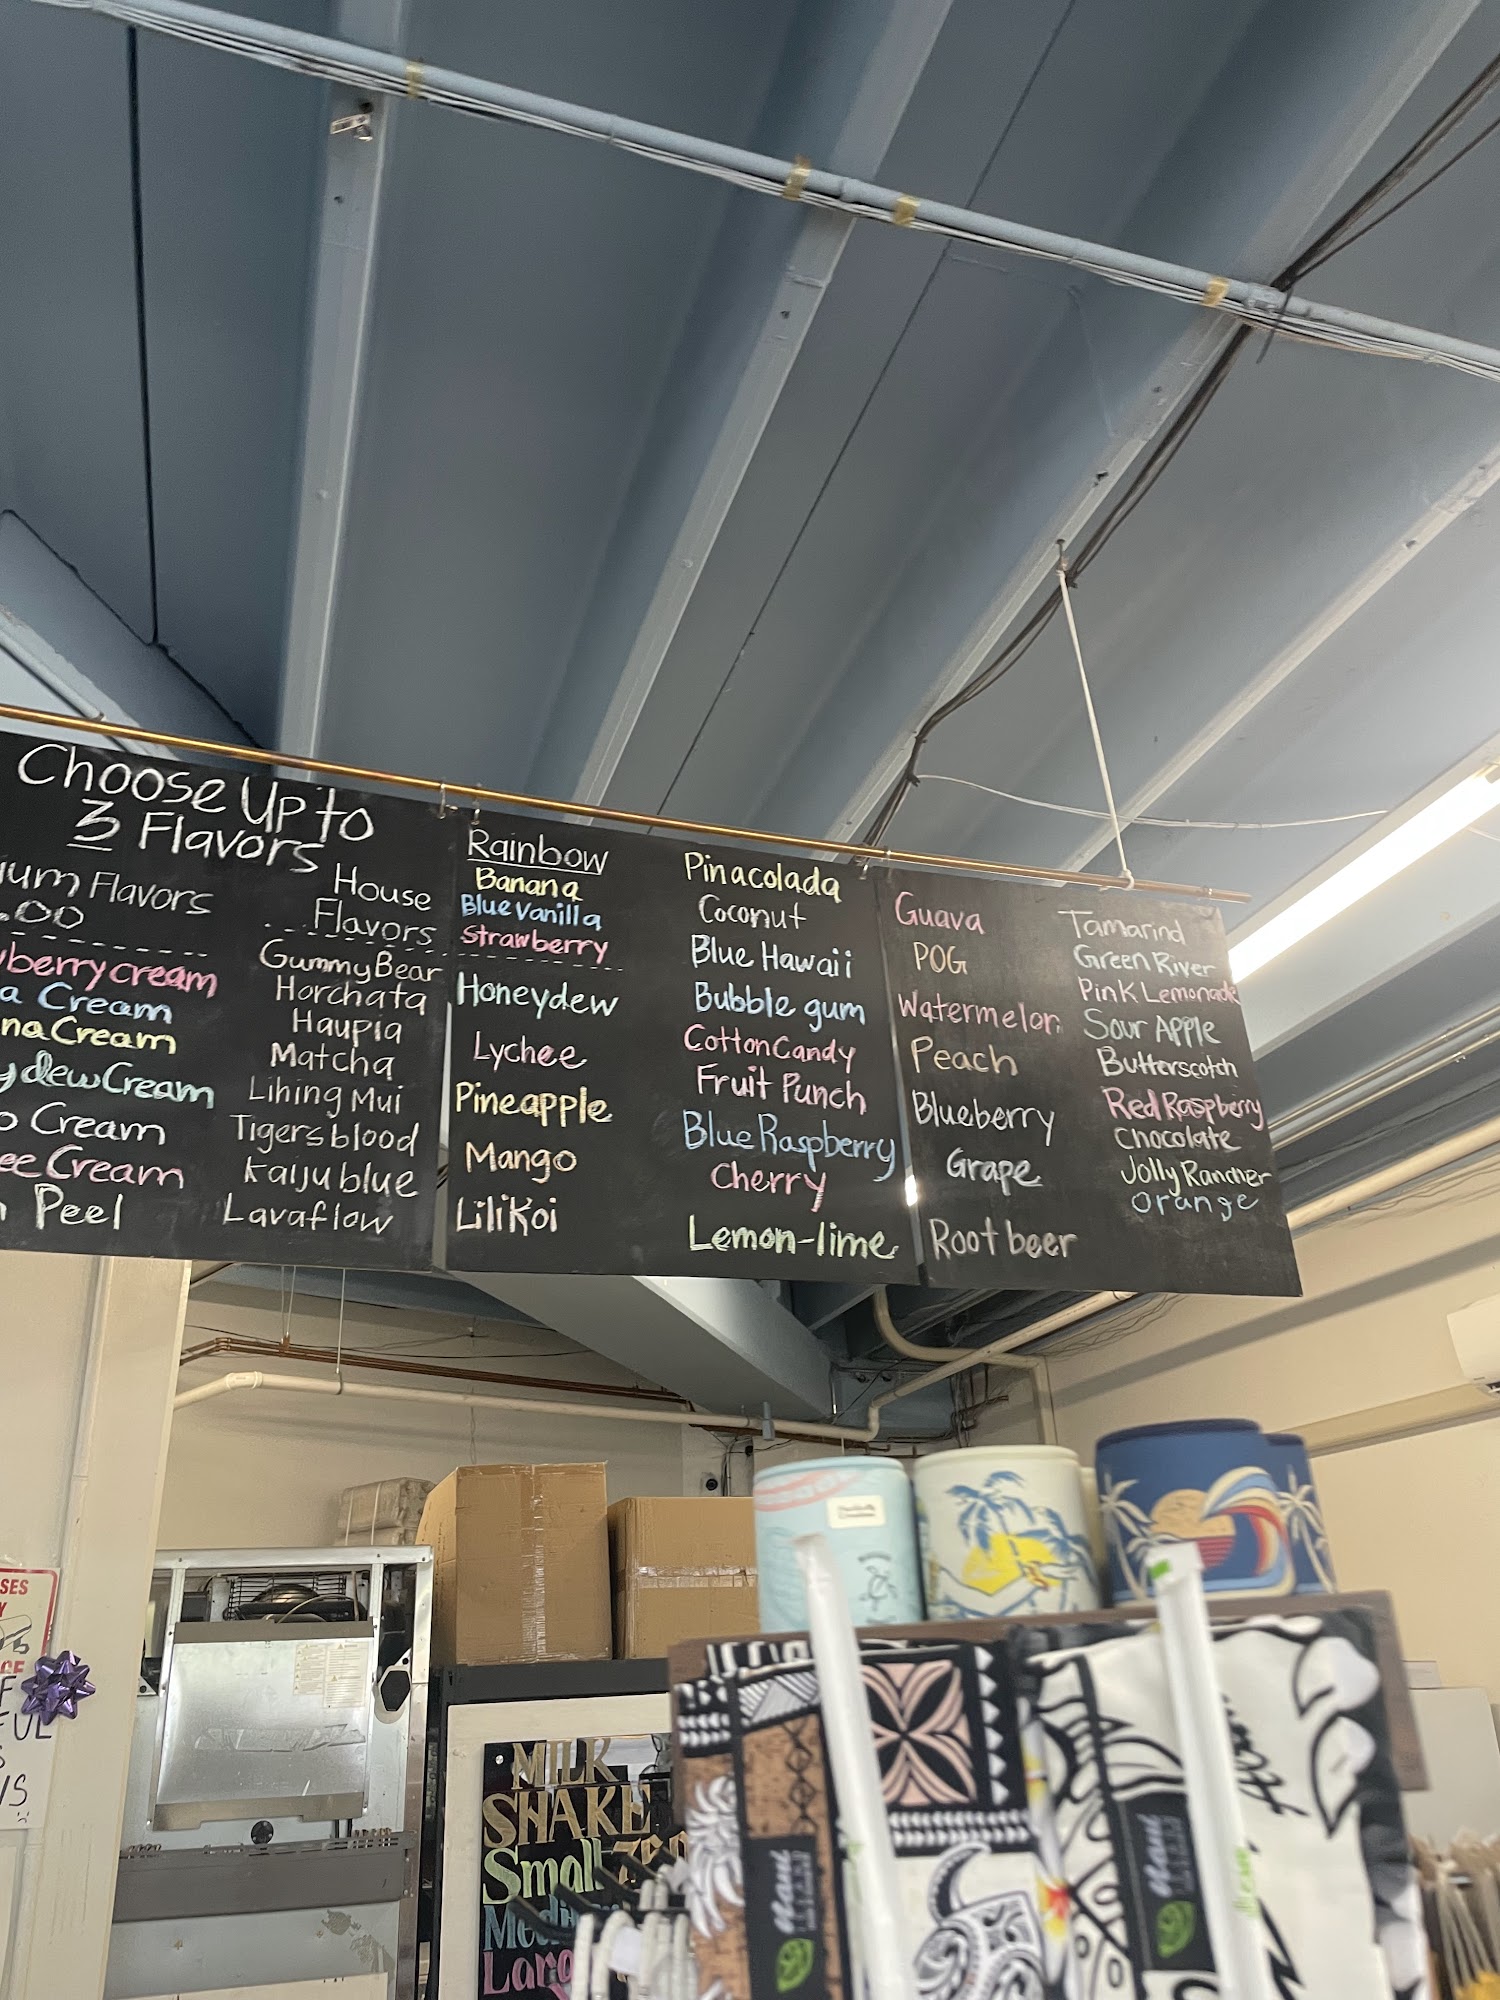 Choose Up to
3 Flavors
Flavors
.00
cream
Cream
Cream
Cream
Cream
Cream
Peel
House
Flavors
Gummy Bear
Horchata
Haupia
Matcha
Lihing Mui
Tigers blood
Kaiju blue
Lavaflow
Rainbow
Banana
Blue Vanilla
Strawberry
Honeydew
Lychee
Pineapple
Mango
LiliKoi
Pinacolada
Coconut
Blue Hawaii
Bubble gum
Cotton Candy
Fruit Punch
Blue Raspberry
Cherry
Lemon-lime
Guava
POG
Watermelon
Peach
Blueberry
Grape
Root beer
Tamarind
Green River
Pink Lemonade
Sour Apple
Butterscotch
Red Raspberry
Chocolate
Jolly Rancher
Orange
MILK
SHAKE
Small